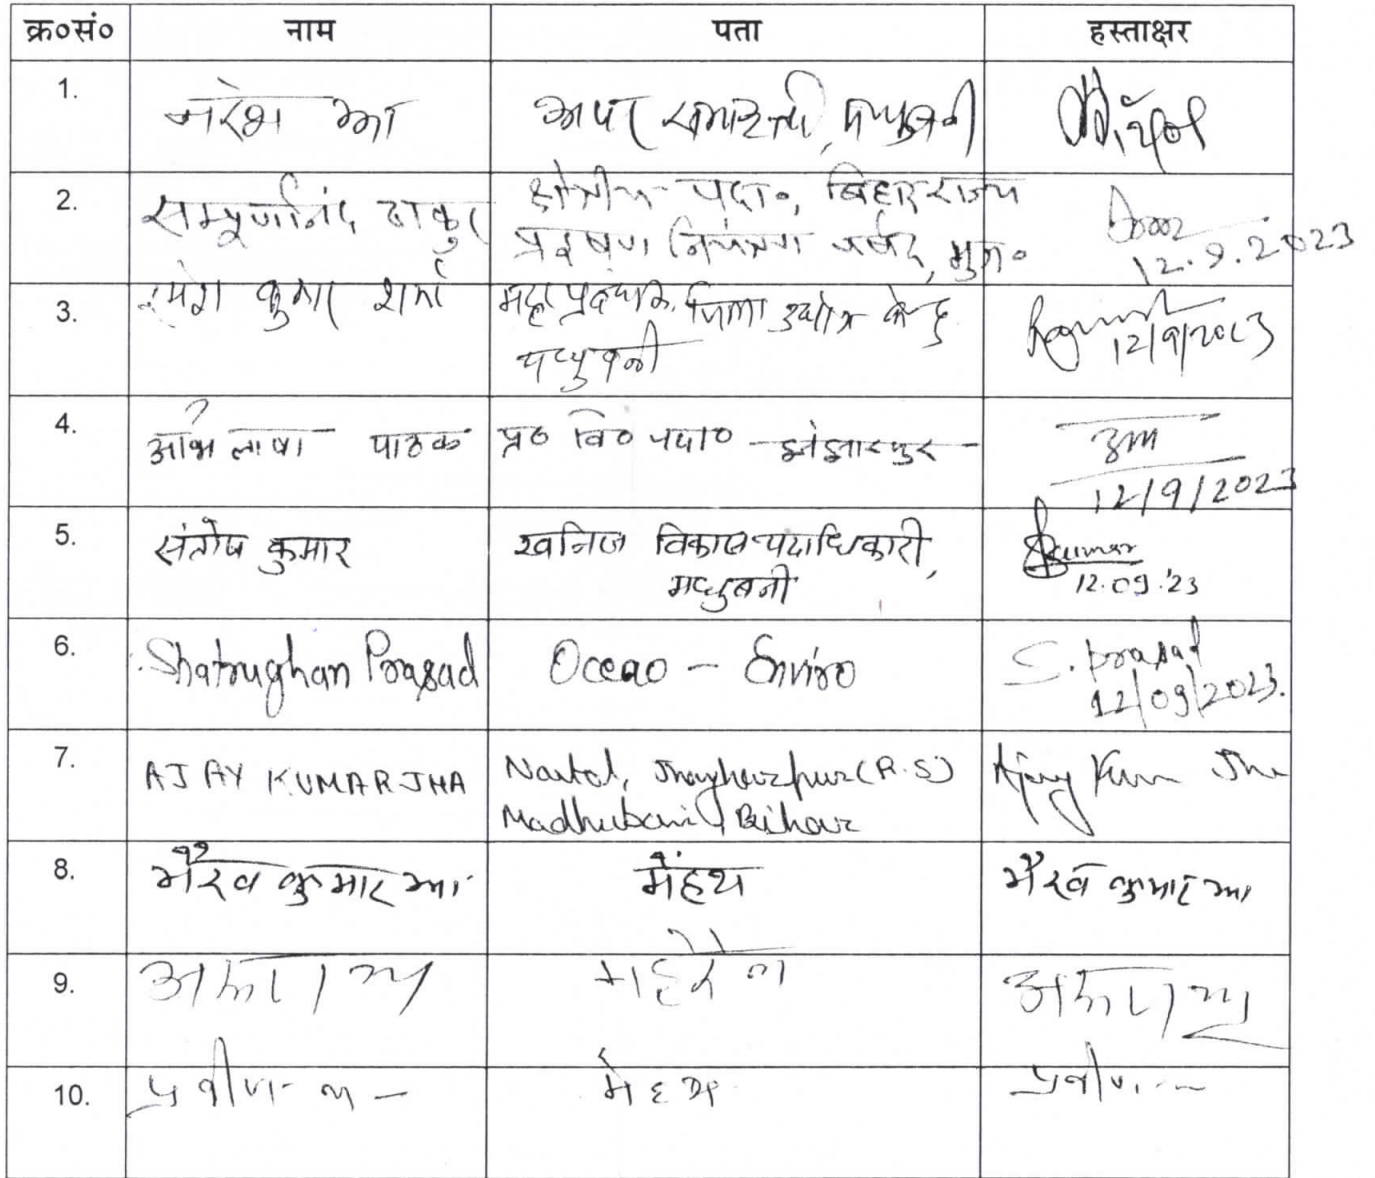 क्र०सं० नाम पता हस्ताक्षर
1. नरेश झा अपर समाहर्ता, मधुबनी
2. सम्पूर्णानंद ठाकुर क्षेत्रीय पदा०, बिहार राज्य
प्रदूषण नियंत्रण पर्षद, मुज०
12.9.2023
3. रमेश कुमार शर्मा महाप्रबंधक, जिला उद्योग केन्द्र
मधुबनी
12/9/2023
4. अभिलाषा पाठक प्र० वि० पदा० झंझारपुर
12/9/2023
5. संतोष कुमार खनिज विकास पदाधिकारी, Kumar
मधुबनी 12.09.'23
6. Shatrughan Prasad Oceao - Enviro S. prasad
12/09/2023.
7. AJAY KUMAR JHA (R.S) Ajay Kum Jha
Madhubani Bihar
8. भैरव कुमार झा मेंहथ भैरव कुमार झा
9.
10. प्रवीण मेंहथ प्रवीण